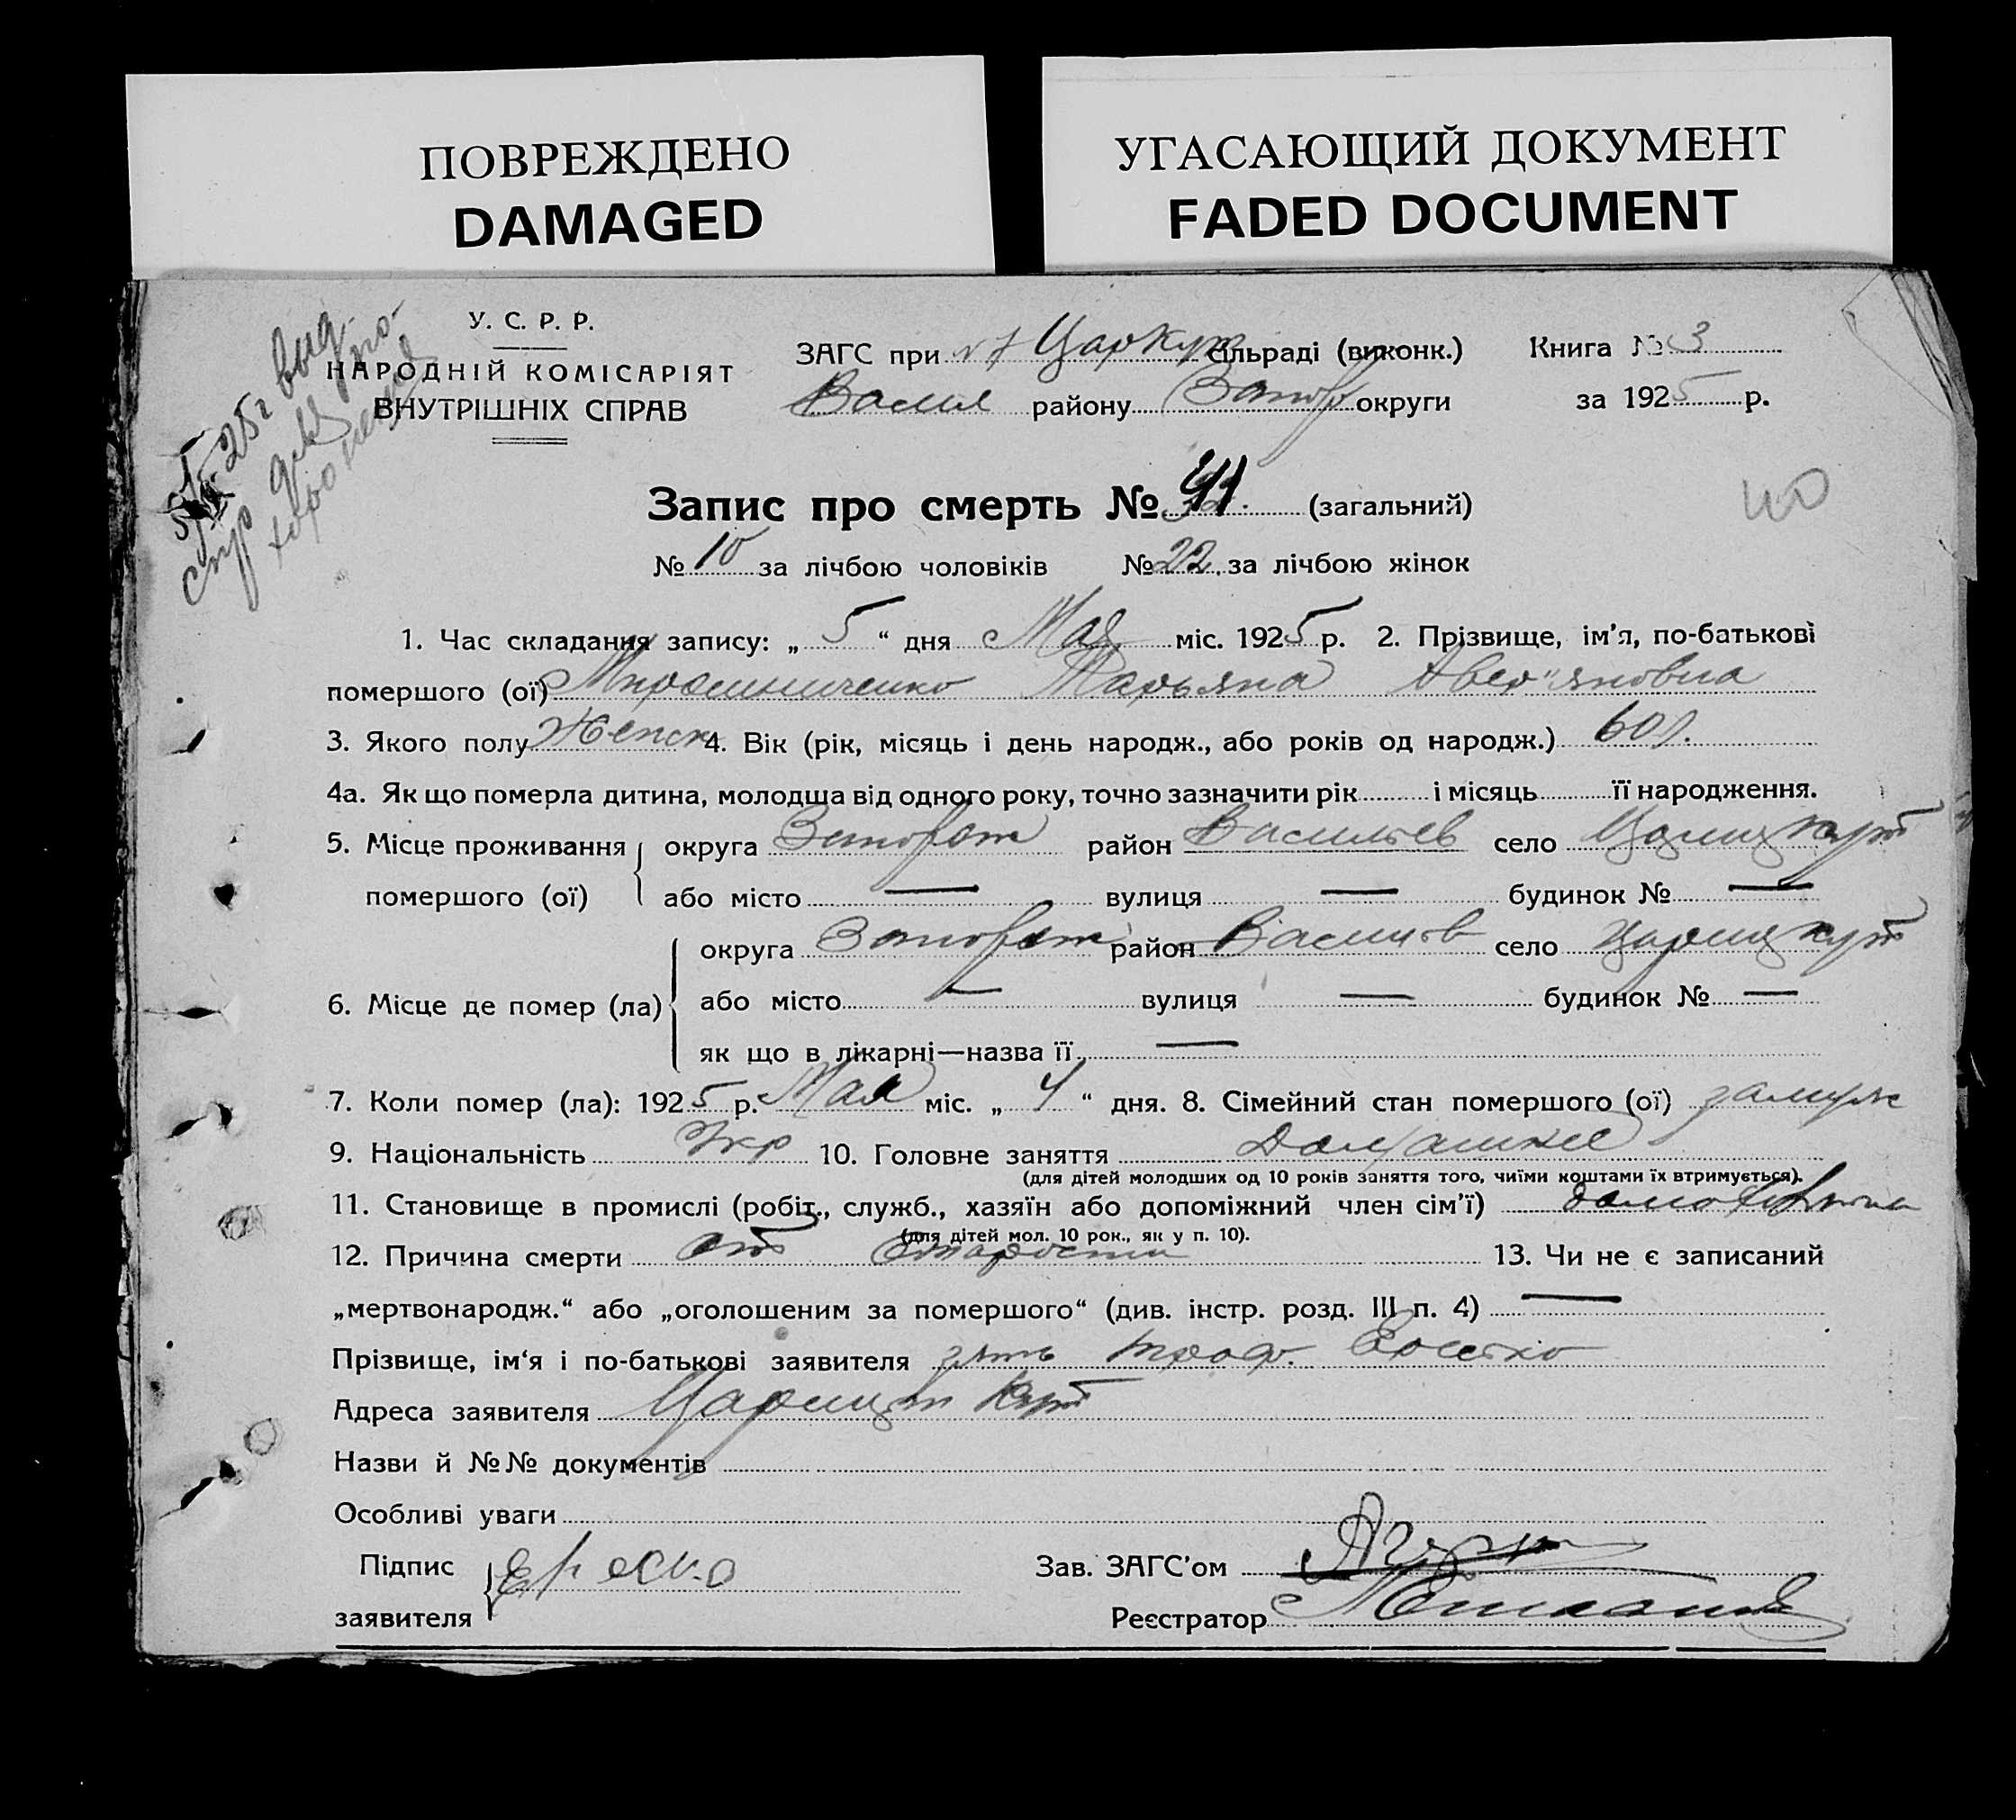 ПОВРЕЖДЕНО
DAMAGED
УГАСАЮЩИЙ ДОКУМЕНТ
FADED DOCUMENT
5/V-25г выд.
спр для по-
хоронения
У. С. Р. Р.
НАРОДНІЙ КОМІСАРІЯТ
ВНУТРІШНІХ СПРАВ
ЗАГС при Царкут сільраді (виконк.) Книга № 3
Васил району Запор округи за 1925 р.
Запис про смерть № (загальний)
40
№ 10 за лічбою чоловіків № 22 за лічбою жінок
1. Час складання запису: „ 5 “ дня Мая міс. 1925 р. 2. Прізвище, ім’я, по-батькові
помершого (ої) Мирошниченко Татьяна Авер"яновна
3. Якого полу Женск 4. Вік (рік, місяць і день народж., або років од народж.) 60 л.
4а. Як що померла дитина, молодща від одного року, точно зазначити рік і місяць її народження.
5. Місце проживання помершого (ої) округа Запорож район Васильев село Царицкут
або місто — вулиця — будинок № —
6. Місце де помер (ла) округа Запорож район Васильев село Царицкут
або місто — вулиця — будинок № —
як що в лікарні—назва її —
7. Коли помер (ла): 1925 р. Мая міс. „ 4 “ дня. 8. Сімейний стан помершого (ої) замуж
9. Національність Укр 10. Головне заняття Домашнее
(для дітей молодших од 10 років заняття того, чиїми коштами їх втримується).
11. Становище в промислі (робіт., служб., хазяїн або допоміжний член сім’ї)
(для дітей мол. 10 рок., як у п. 10).
12. Причина смерти от старости 13. Чи не є записаний
„мертвонародж.“ або „оголошеним за помершого“ (див. інстр. розд. III п. 4) —
Прізвище, ім‘я і по-батькові заявителя зять Троф.
Адреса заявителя Царицын Кут
Назви й №№ документів
Особливі уваги
Підпис заявителя
Зав. ЗАГС’ом
Реєстратор